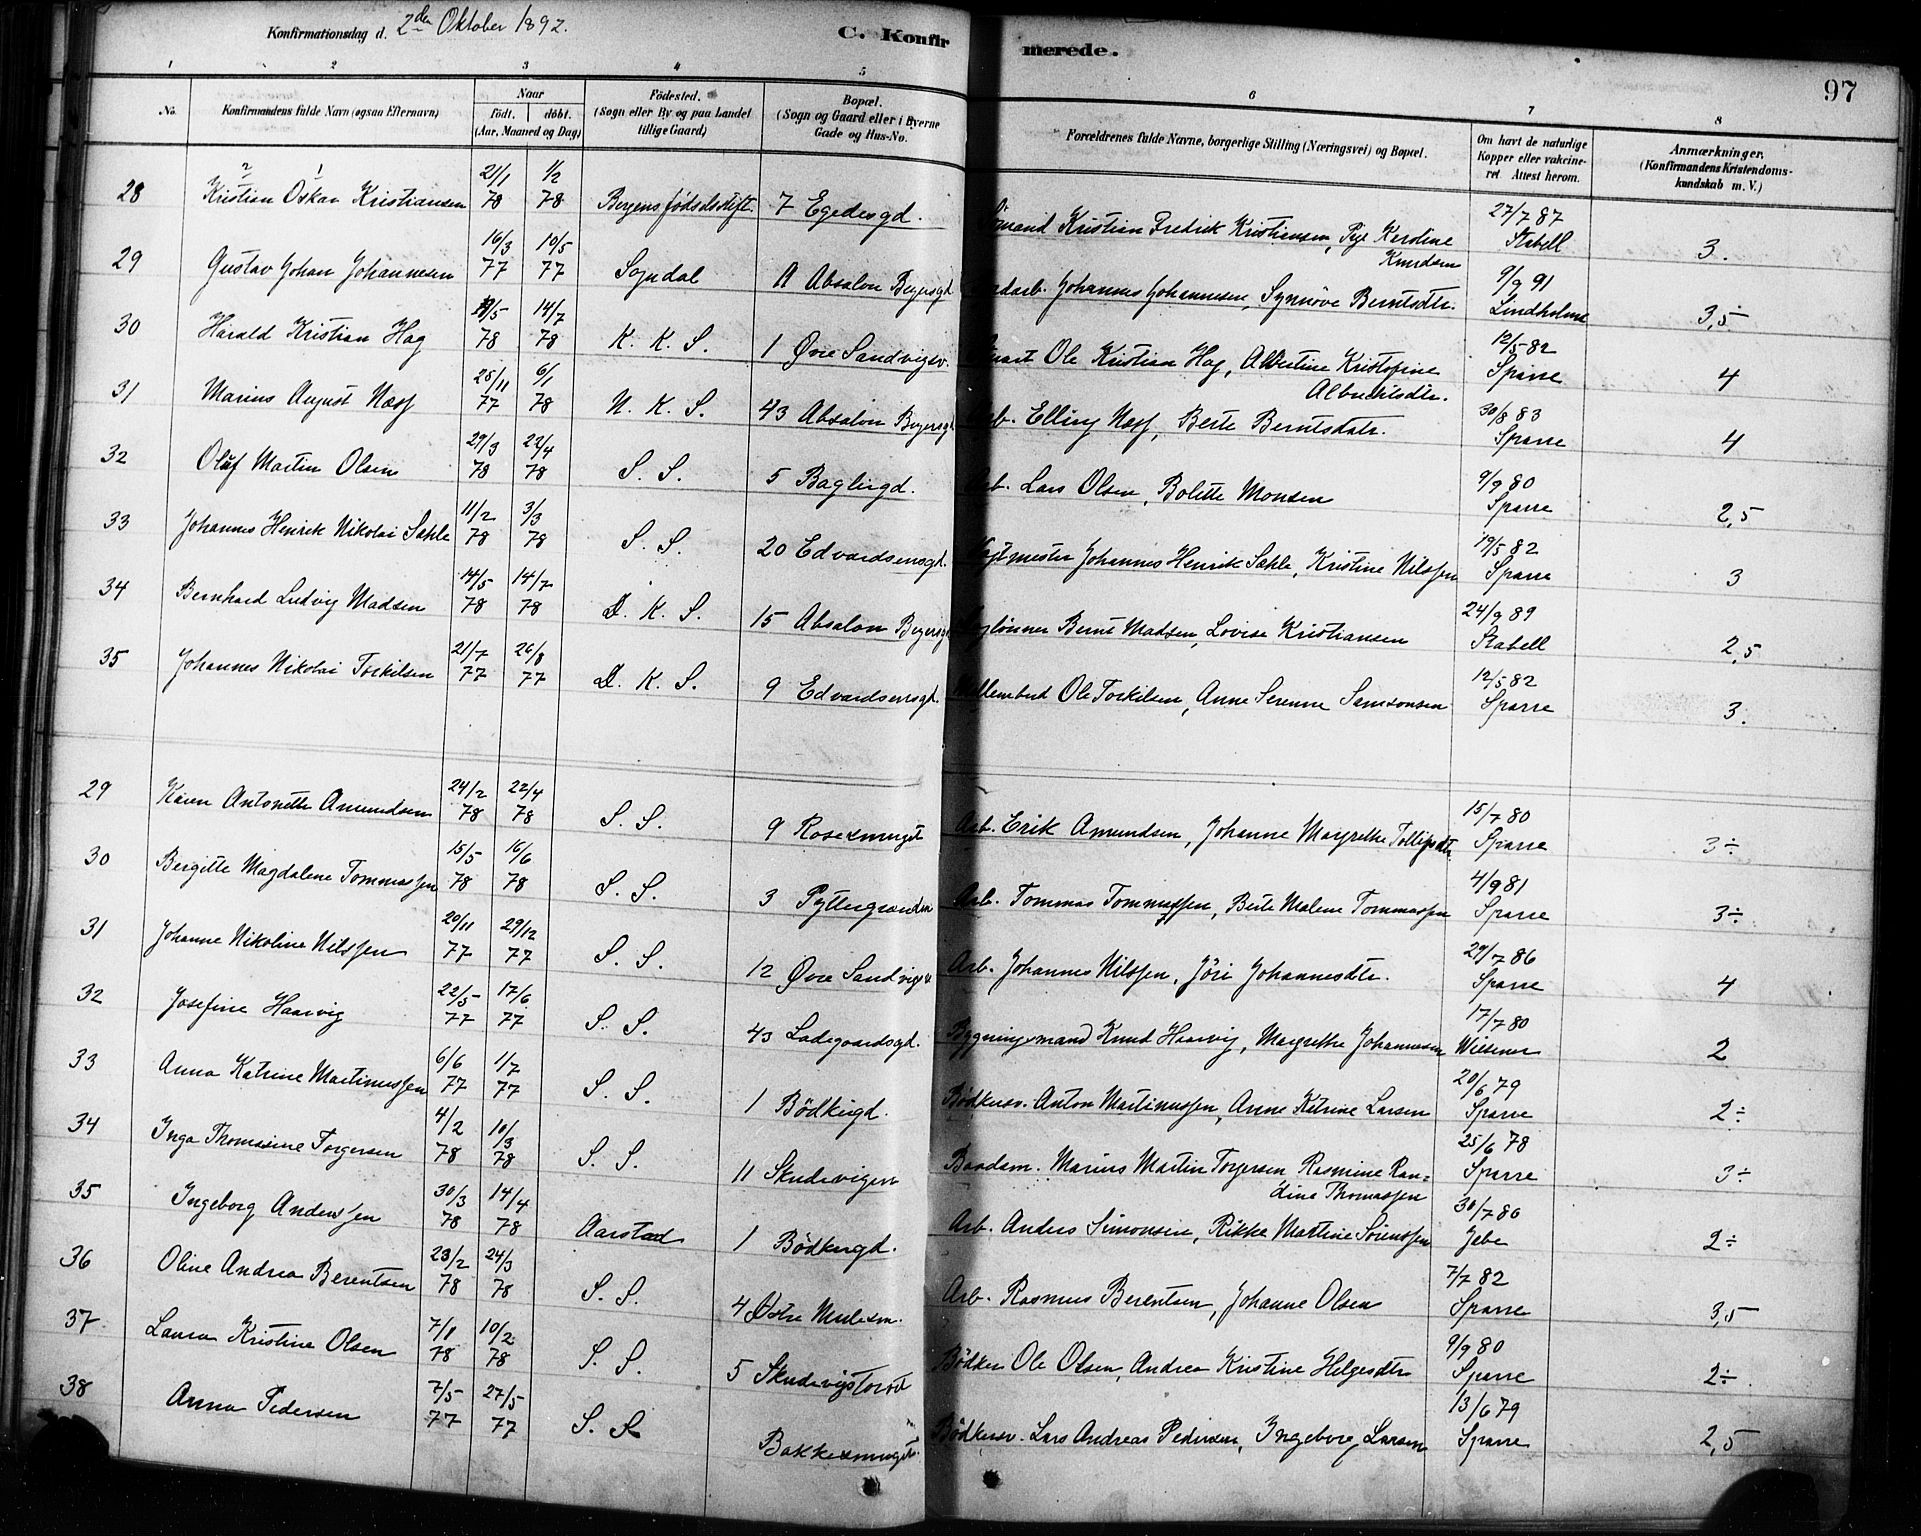 Konfirmationsdag d. 2den Oktober 1892. C. Konfirmerede. 97
1 2 3 4 5 6 7 8
No. Konfirmandens fulde Navn (ogsaa Efternavn) Naar födt. döbt. (Aar, Maaned og Dag) Födested. (Sogn eller By og paa Landet tillige Gaard) Bopæl. (Sogn og Gaard eller i Byerne Gade og Hus-No. Forældrenes fulde Navne, borgerlige Stilling (Næringsvei) og Bopæl. Om havt de naturlige Kopper eller vakcineret. Attest herom. Anmærkninger. (Konfirmandens Kristendomskundskab m. V.)
28 Kristian Oskar Kristiansen 21/1 78 1/2 78 Bergens fødselsstift. 7 Egedesgd. Kristian Fredrik Kristiansen, Karoline Knudsen 27/7 87 Stabell 3.
29 Gustav Johan Johannesen 16/3 77 10/5 77 Sogndal 11 Absalon Beyersgd Johannes Johannesen, Synnöve Berntsdtr. 9/9 91 Lindholm 3,5
30 Harald Kristian Hag 78 14/7 78 K. K. S. 1 Øvre Sandvigsv. Ole Kristian Hag, Albertine Kristofine Albrechtsdtr. 12/5 82 Sparre 4
31 Marius August Næss 25/11 77 6/1 78 N. K. S. 43 Absalon Beyersgd Arb. Elling Næss, Berte Berntsdatr. 30/8 83 Sparre 4
32 Oluf Martin Olsen 29/3 78 22/4 78 S. S. 5 Baglergd. Arb. Lars Olsen, Bolette Monsen 9/9 80 Sparre 2,5
33 Johannes Henrik Nikolai Sæhle 11/2 78 3/3 78 S. S. 20 Edvardsensgd. Johannes Henrik Sæhle, Kristine Nilssen 19/5 82 Sparre 3
34 Bernhard Ludvig Madsen 14/5 78 14/7 78 D. K. S. 15 Absalon Beyersgd Daglönner Bernt Madsen, Lovise Kristiansen 24/9 89 Stabell 2,5
35 Johannes Nikolai Torkilsen 21/7 77 26/8 77 D. K. S. 9 Edvardsensgd. Ole Torkilsen, Anne Serenne Samsonsen 12/5 82 Sparre 3.
29 Karen Antonette Amundsen 24/2 78 22/4 78 S. S. 9 Rosesmuget Arb. Erik Amundsen, Johanne Margrethe Tollefsdtr. 15/7 80 Sparre 3÷
30 Bergitte Magdalene Tommassen 15/5 78 16/6 78 S. S. 3 Pyttergranden Arb. Tommas Tommassen, Berte Malene Tommassen 4/9 81 Sparre 3÷
31 Johanne Nikoline Nilssen 20/11 77 29/12 77 S. S. 12 Øvre Sandvigsv Arb. Johannes Nilssen, Jöri Johannesdtr. 29/7 86 Sparre 4
32 Josefine Haarvig 22/5 77 17/6 77 S. S. 43 Ladegaardsgd. Bygningsmand Knud Haarvig, Margrethe Johannesen 17/7 80 Wiesener 2
33 Anna Katrine Martinussen 6/6 77 1/7 77 S. S. 1 Bödkergd. Bödkersv. Anton Martinussen, Anne Katrine Larsen 20/6 79 Sparre 2÷
34 Inga Thomasine Torgersen 4/2 78 10/3 78 S. S. 11 Skudevigen Baadsm. Marius Martin Torgersen Rasmine Randine Thomassen 25/6 78 Sparre 3÷
35 Ingeborg Anderssen 30/3 78 14/4 78 Aarstad 1 Bödkergd. Arb. Anders Simonsen, Rikke Martine Sörenssen 30/7 80 Jebe 2÷
36 Oline Andrea Berentsen 23/2 78 24/3 78 S. S. 4 Østre Mulesm. Arb. Rasmus Berentsen, Johanne Olsen 7/7 82 Sparre 3,5
37 Laura Kristine Olsen 7/1 78 10/2 78 S. S. 5 Skudevigstorvet Bödker Ole Olsen, Andrea Kristine Helgesdtr 9/9 80 Sparre 2÷
38 Anna Pedersen 7/5 77 27/5 77 S. S. Bakkesmuget Bödkersv. Lars Andreas Pedersen, Ingeborg Larsen 13/6 79 Sparre 2,5